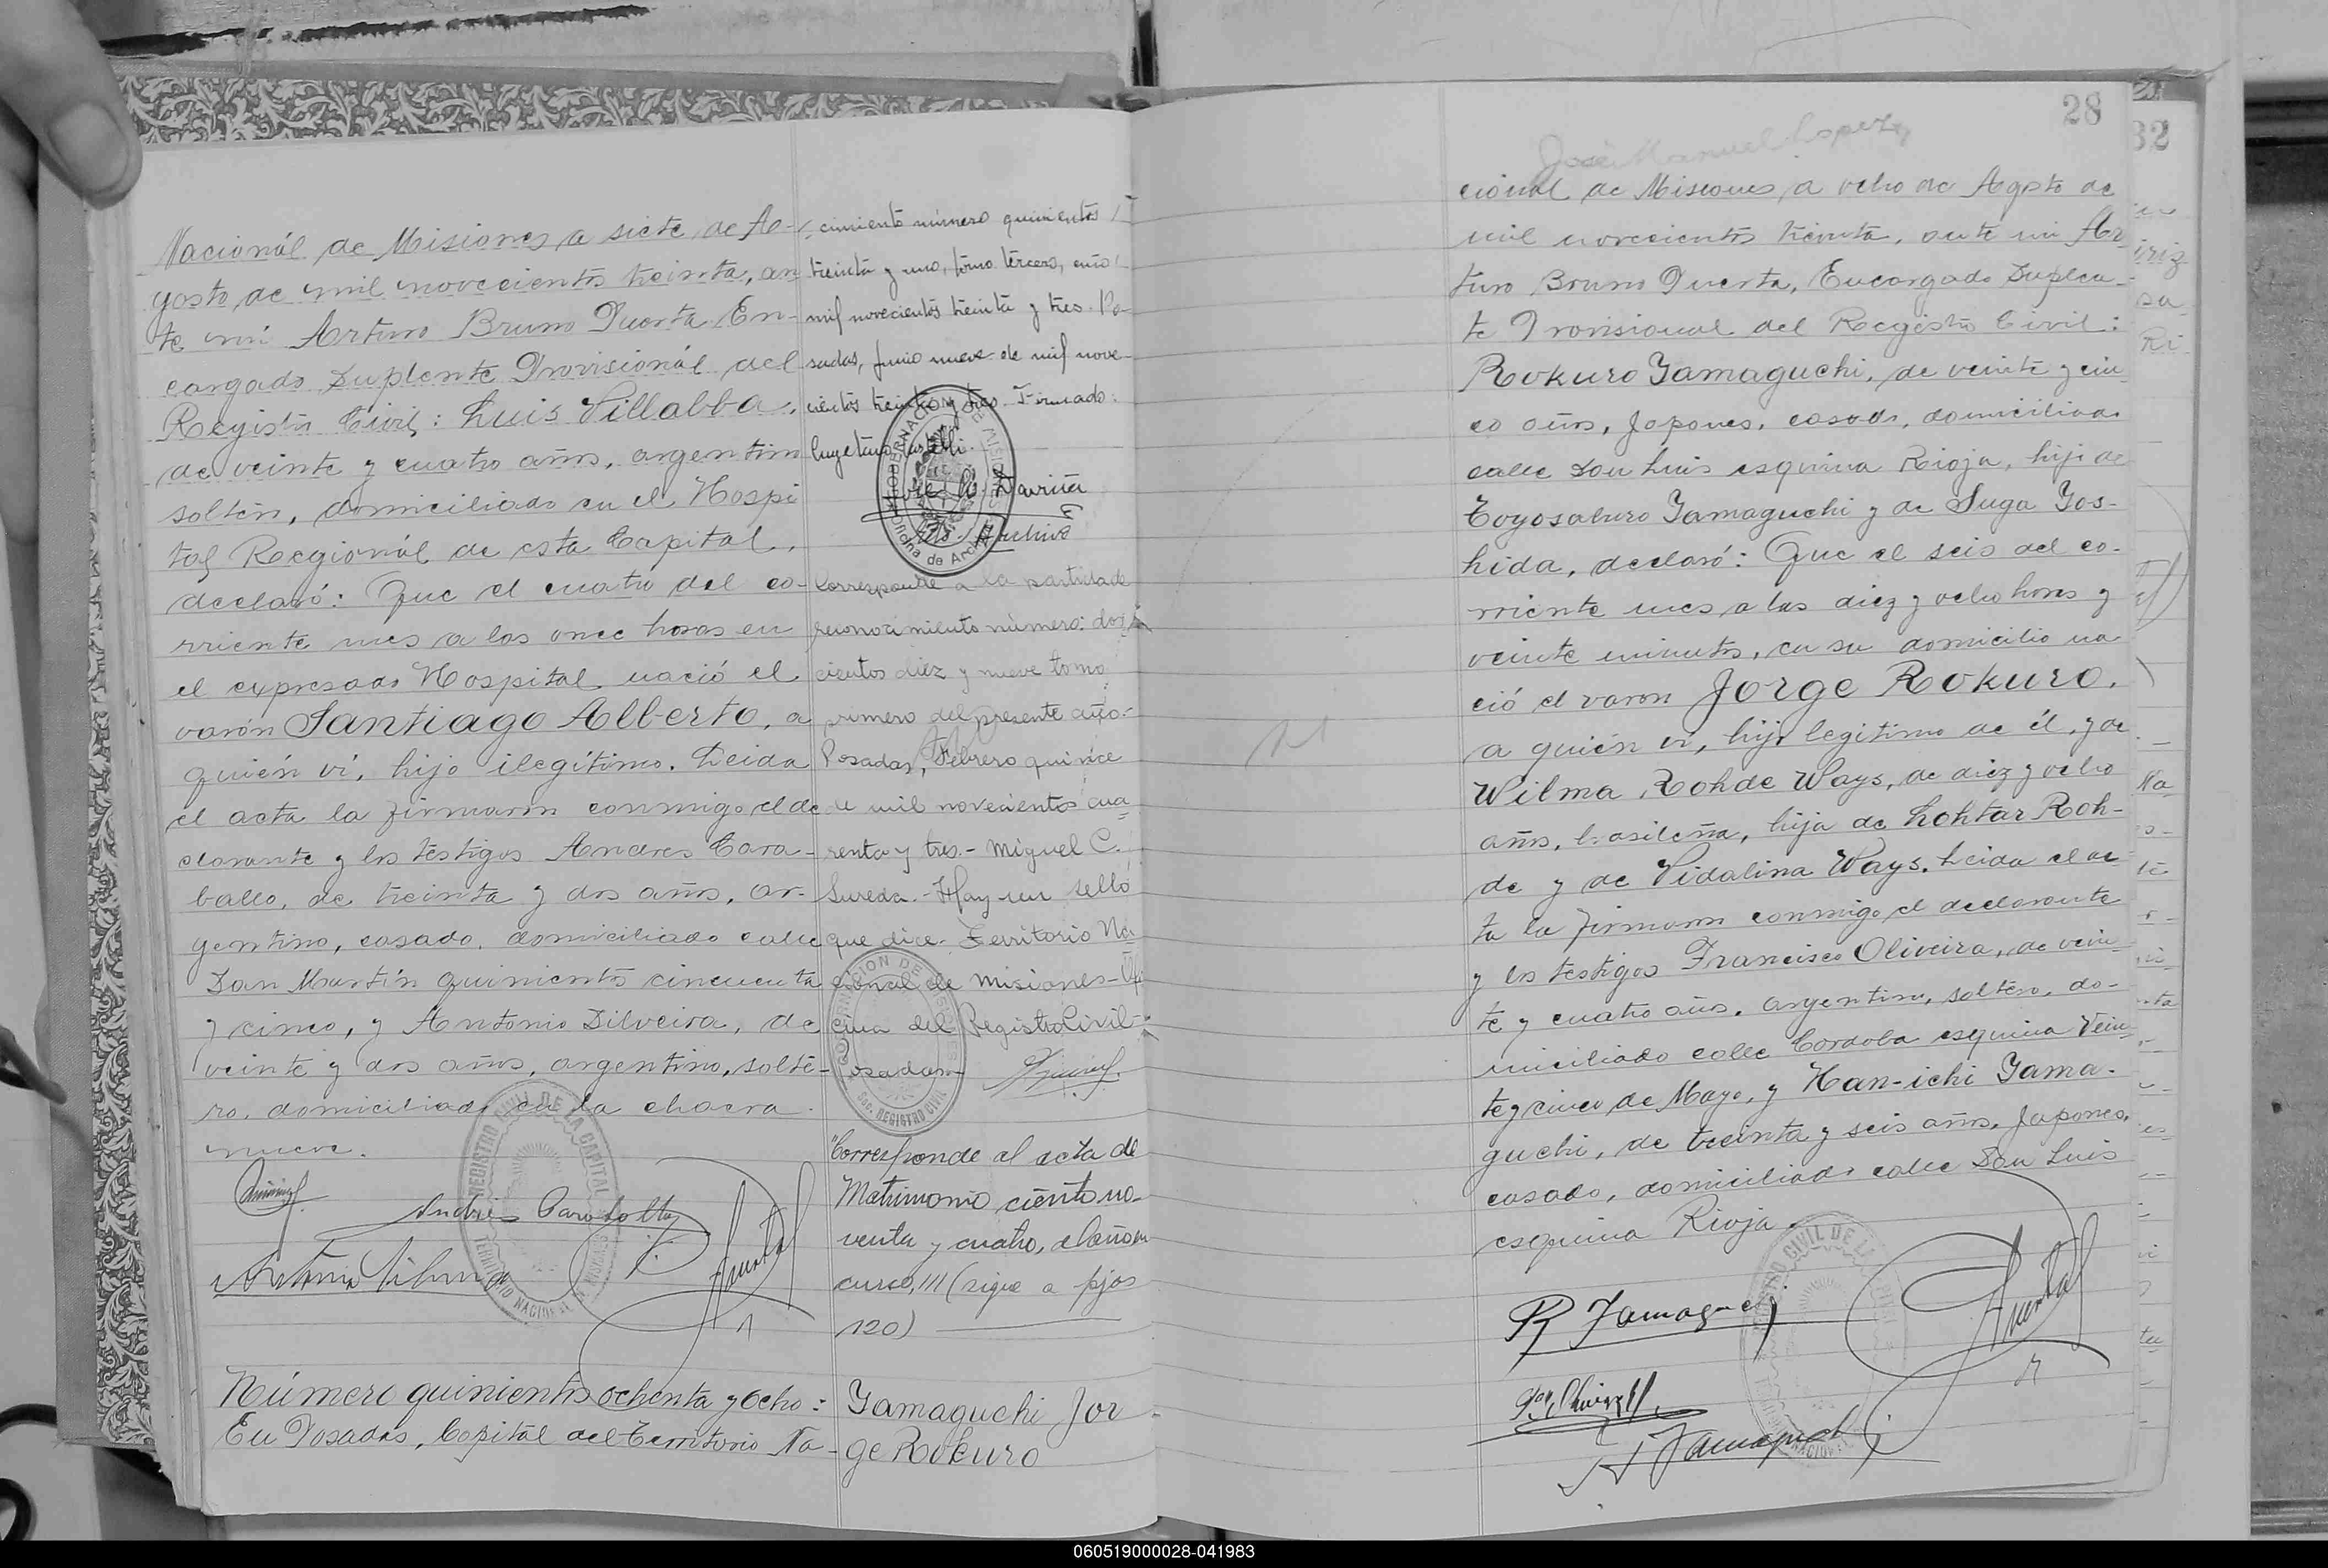 Nacionál de Misiones, a siete de A-
gosto, de mil novecientos treinta, an
te mí Arturo Bruno Puerta En-
cargado Suplente Provisionál del
Registro Civil: Luis Villalba,
de veinte y cuatro años, argentino
soltero, domiciliado en el Hospi
tal Regionál de esta Capital,
declaró: Que el cuatro del co-
rriente mes a las once horas en
el expresado Hospital nació el
varón Santiago Alberto, a
quién ví, hijo ilegítimo. Leida
el acta la firmaron conmigo el de
clarante y los testigos Andres Cara-
ballo, de treinta y dos años, ar-
gentino, casado, domiciliado calle
San Martín quinientos cincuenta
y cinco, y Antonio Silveira, de
veinte y dos años, argentino, solte-
ro, domiciliado en la chacra
nueve.
REGISTRO CIVIL DE LA CAPITAL
TERRITORIO NACIONAL DE MISIONES
Número quinientos ochenta y ocho:
En Posadas, Capitál del Territorio Na-
cimiento número quinientos
treinta y uno, tomo tercero, año
mil novecientos treinta y tres. Po-
sadas, Junio nueve de mil nove-
cientos treinta y tres. Firmado:
Cayetano Castelli.
GOBERNACION DE MISIONES
Oficina de Archivo
Corresponde a la partida de
reconocimiento número: dos
cientos diez y nueve tomo
primero del presente año.-
Posadas, Febrero quince
de mil novecientos cua
renta y tres.- Miguel C.
Sureda.- Hay un sello
que dice. Territorio Na
cional de Misiones- Ofi
cina del Registro Civil-
Posadas-
GOBERNACION DE MISIONES
Sec. REGISTRO CIVIL
"Corresponde al acta de
Matrimonio ciento no-
venta y cuatro, el año en
curso, /// (sigue a fjas
120)
Yamaguchi Jor
ge Rokuro
28
32
José Manuel Lopez
cional de Misiones, a ocho de Agosto de
mil novecientos treinta, ante mi Ar
turo Bruno Puerta, Encargado Suplen-
te Provisional del Registro Civil:
Rokuro Yamaguchi, de veinte y cin
co años, Japones, casado, domiciliado
calle San Luis esquina Rioja, hijo de
Toyosaburo Yamaguchi y de Suga Yos-
hida, declaró: Que el seis del co-
rriente mes a las diez y ocho horas y
veinte minutos, en su domicilio na
ció el varon Jorge Rokuro,
a quién ví, hijo legitimo de él, y de
Wilma Rohde Ways, de diez y ocho
años, brasileña, hija de Lohtar Roh-
de y de Vidalina Ways. Leida el ac
ta la firmaron conmigo el declarante
y los testigos Francisco Oliveira, de vein
te y cuatro años, argentino, soltero, do-
miciliado calle Cordoba esquina Vein
te y cinco de Mayo, y Han-ichi Yama-
guchi, de treinta y seis años, Japones,
casado, domiciliado calle San Luis
esquina Rioja.
R Yamaguchi
H Yamaguchi
060519000028-041983